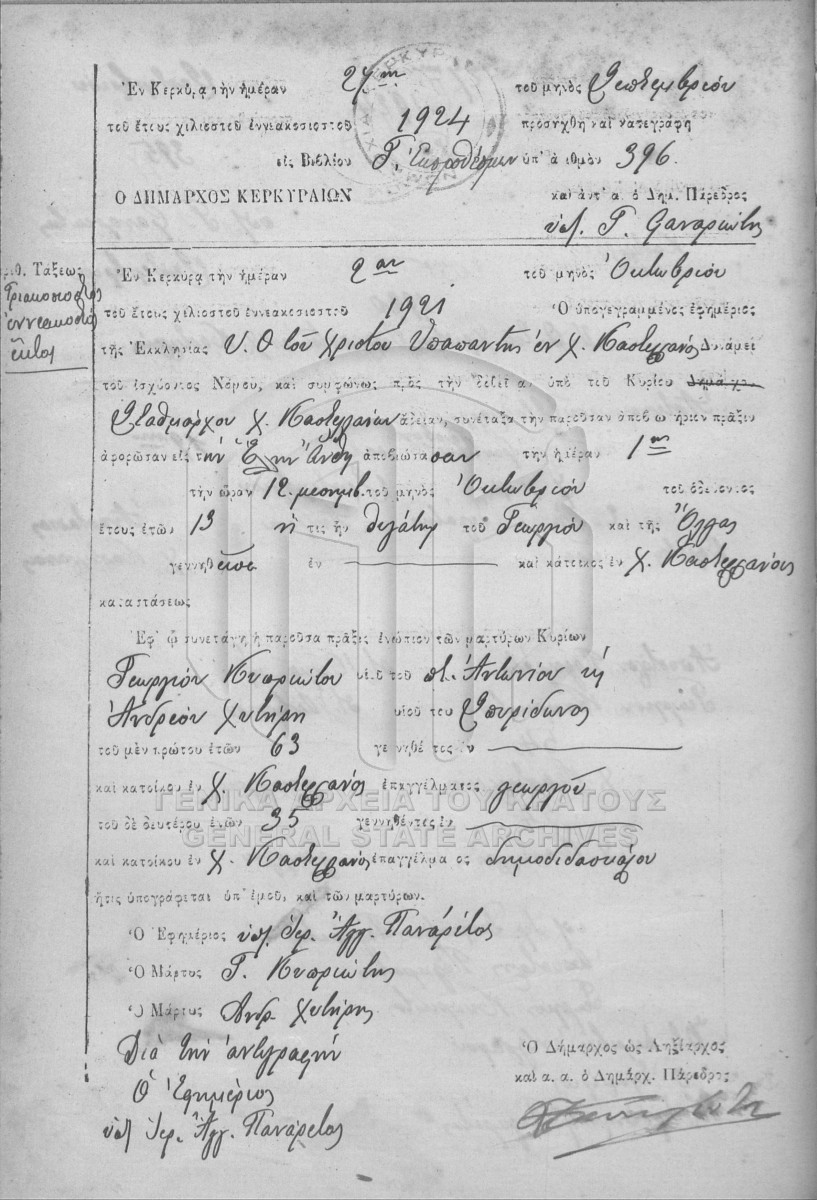 Ἐν Κερκύρᾳ τὴν ἡμέραν 27ην τοῦ μηνὸς Σεπτεμβρίου
τοῦ ἔτους χιλιοστοῦ ἐννεακοσιοστοῦ 1924 προσήχθη καὶ κατεγράφη
εἰς Βιβλίον Γ, Ἐκπροθέσμων ὑπ' ἀριθμὸν 396.
Ο ΔΗΜΑΡΧΟΣ ΚΕΡΚΥΡΑΙΩΝ καὶ ἀντ' α. ὁ Δημ. Πάρεδρος
ὑπ. Γ.
ριθ. Τάξεως
Τριακοσιοστὸς
ἐννενηκοστὸς
ἕκτος
Ἐν Κερκύρᾳ τὴν ἡμέραν 2αν τοῦ μηνὸς Ὀκτωβρίου
τοῦ ἔτους χιλιοστοῦ ἐννεακοσιοστοῦ 1921 Ὁ ὑπογεγραμμένος ἐφημέριος
τῆς Ἐκκλησίας Υ. Θ τοῦ Χριστοῦ Υπαπαντῆς ἐν χ. Καστελλάνος Δυνάμει
τοῦ ἰσχύοντος Νόμου, καὶ συμφώνως πρὸς τὴν δοθεῖσαν ὑπὸ τοῦ Κυρίου Δημάρχου
Σταθμάρχου χ. Καστελλάνων ἄδειαν, συνέταξα τὴν παροῦσαν ἀποβιωτήριον πρᾶξιν
ἀφορῶσαν εἰς τὴν Ἑλένην Ἄνθη ἀποβιώσασαν τὴν ἡμέραν 1ην
τὴν ὥραν 12 μεσημβ. τοῦ μηνὸς Ὀκτωβρίου τοῦ ὁδεύοντος
ἔτους ἐτῶν 13 ἥτις ἦν θυγάτηρ τοῦ Γεωργίου καὶ τῆς Ὄλγας
γεννηθεῖσα ἐν καὶ κάτοικος ἐν χ. Καστελλάνος
καταστάσεως
Ἐφ' ᾧ συνετάγη ἡ παροῦσα πρᾶξις ἐνώπιον τῶν μαρτύρων Κυρίων
Γεωργίου Κυπριώτου υἱοῦ τοῦ π. Ἀντωνίου κ
Ἀνδρέου Χυτήρη υἱοῦ του Σπυρίδωνος
τοῦ μὲν πρώτου ἐτῶν 63 γεννηθέντος ἐν
καὶ κατοίκου ἐν χ. Καστελλάνος ἐπαγγέλματος γεωργοῦ
τοῦ δὲ δευτέρου ἐτῶν 35 γεννηθέντος ἐν
καὶ κατοίκου ἐν χ. Καστελλάνος ἐπαγγέλματος δημοδιδασκάλου
ἥτις ὑπογράφεται ὑπ' ἐμοῦ, καὶ τῶν μαρτύρων.
Ὁ Ἐφημέριος ὑπ. Ἱερ. Ἀγγ. Πανάρετος
Ὁ Μάρτυς Γ. Κυπριώτης
Ὁ Μάρτυς Ανδρ. Χυτήρης
Διὰ τὴν ἀντιγραφὴν
Ὁ Ἐφημέριος
ὑπ. Ἱερ. Ἀγγ. Πανάρετος
Ὁ Δήμαρχος ὡς Ληξίαρχος
καὶ α. α. ὁ Δημάρχ. Πάρεδρος
ΓΕΝΙΚΑ ΑΡΧΕΙΑ ΤΟΥ ΚΡΑΤΟΥΣ
GENERAL STATE ARCHIVES